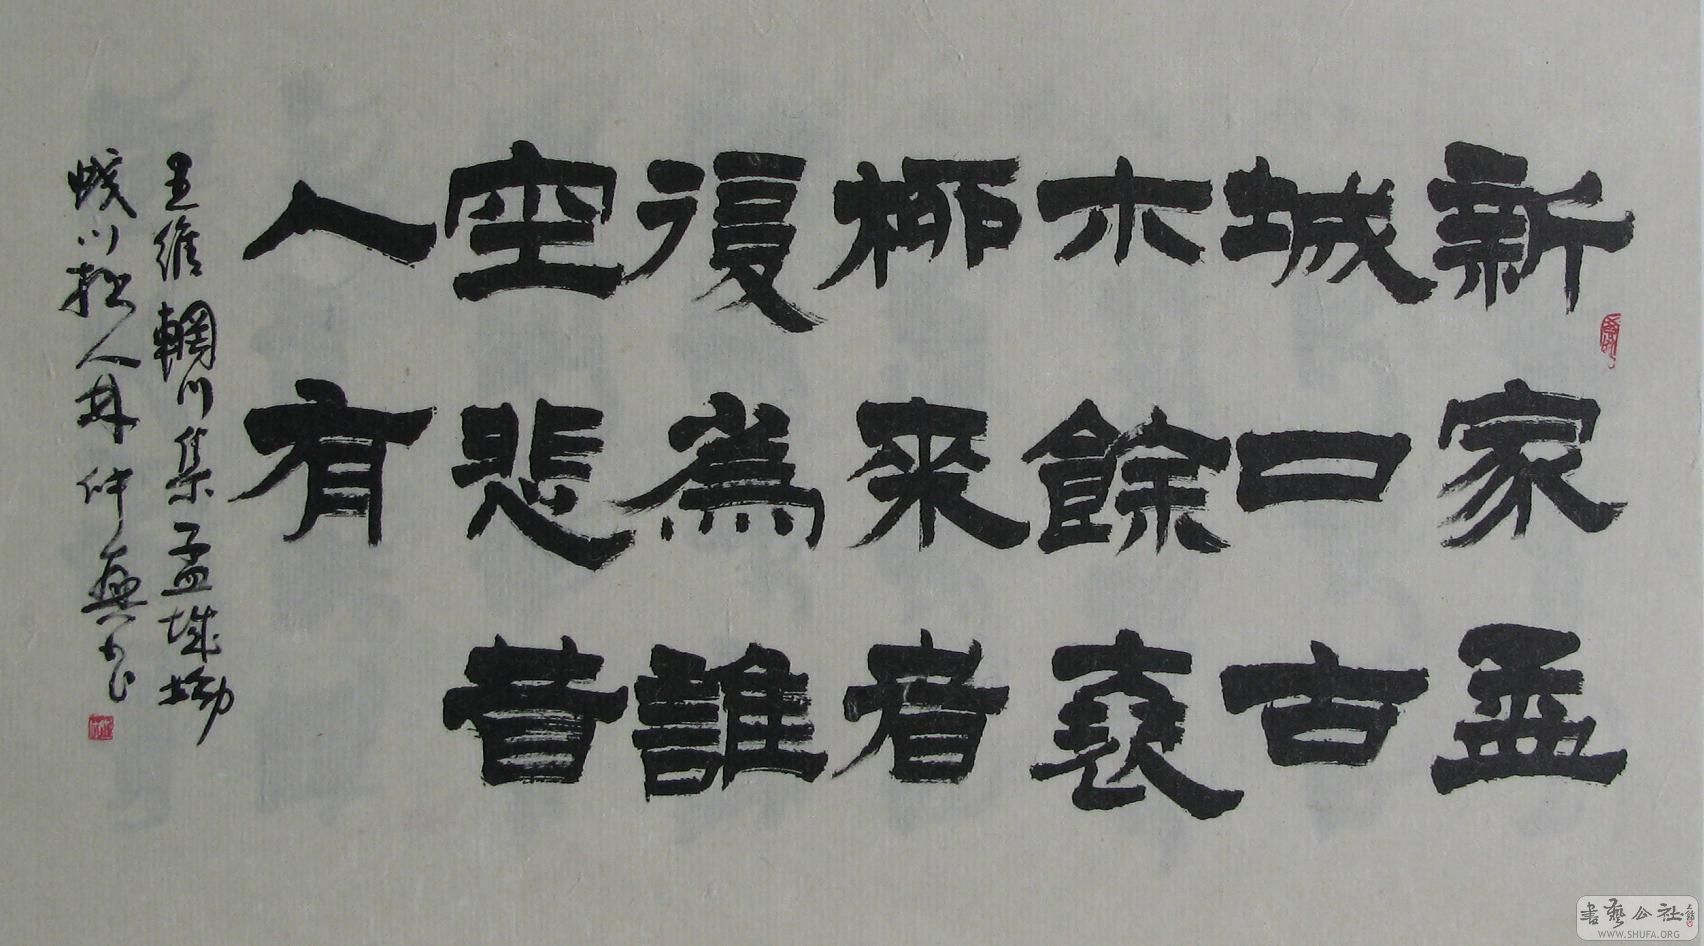 新家孟
城口古
木餘衰
柳来者
復為誰
空悲昔
人有
王維輞川集孟城坳
川拙人林仲興书
書藝公社
WWW.SHUFA.ORG